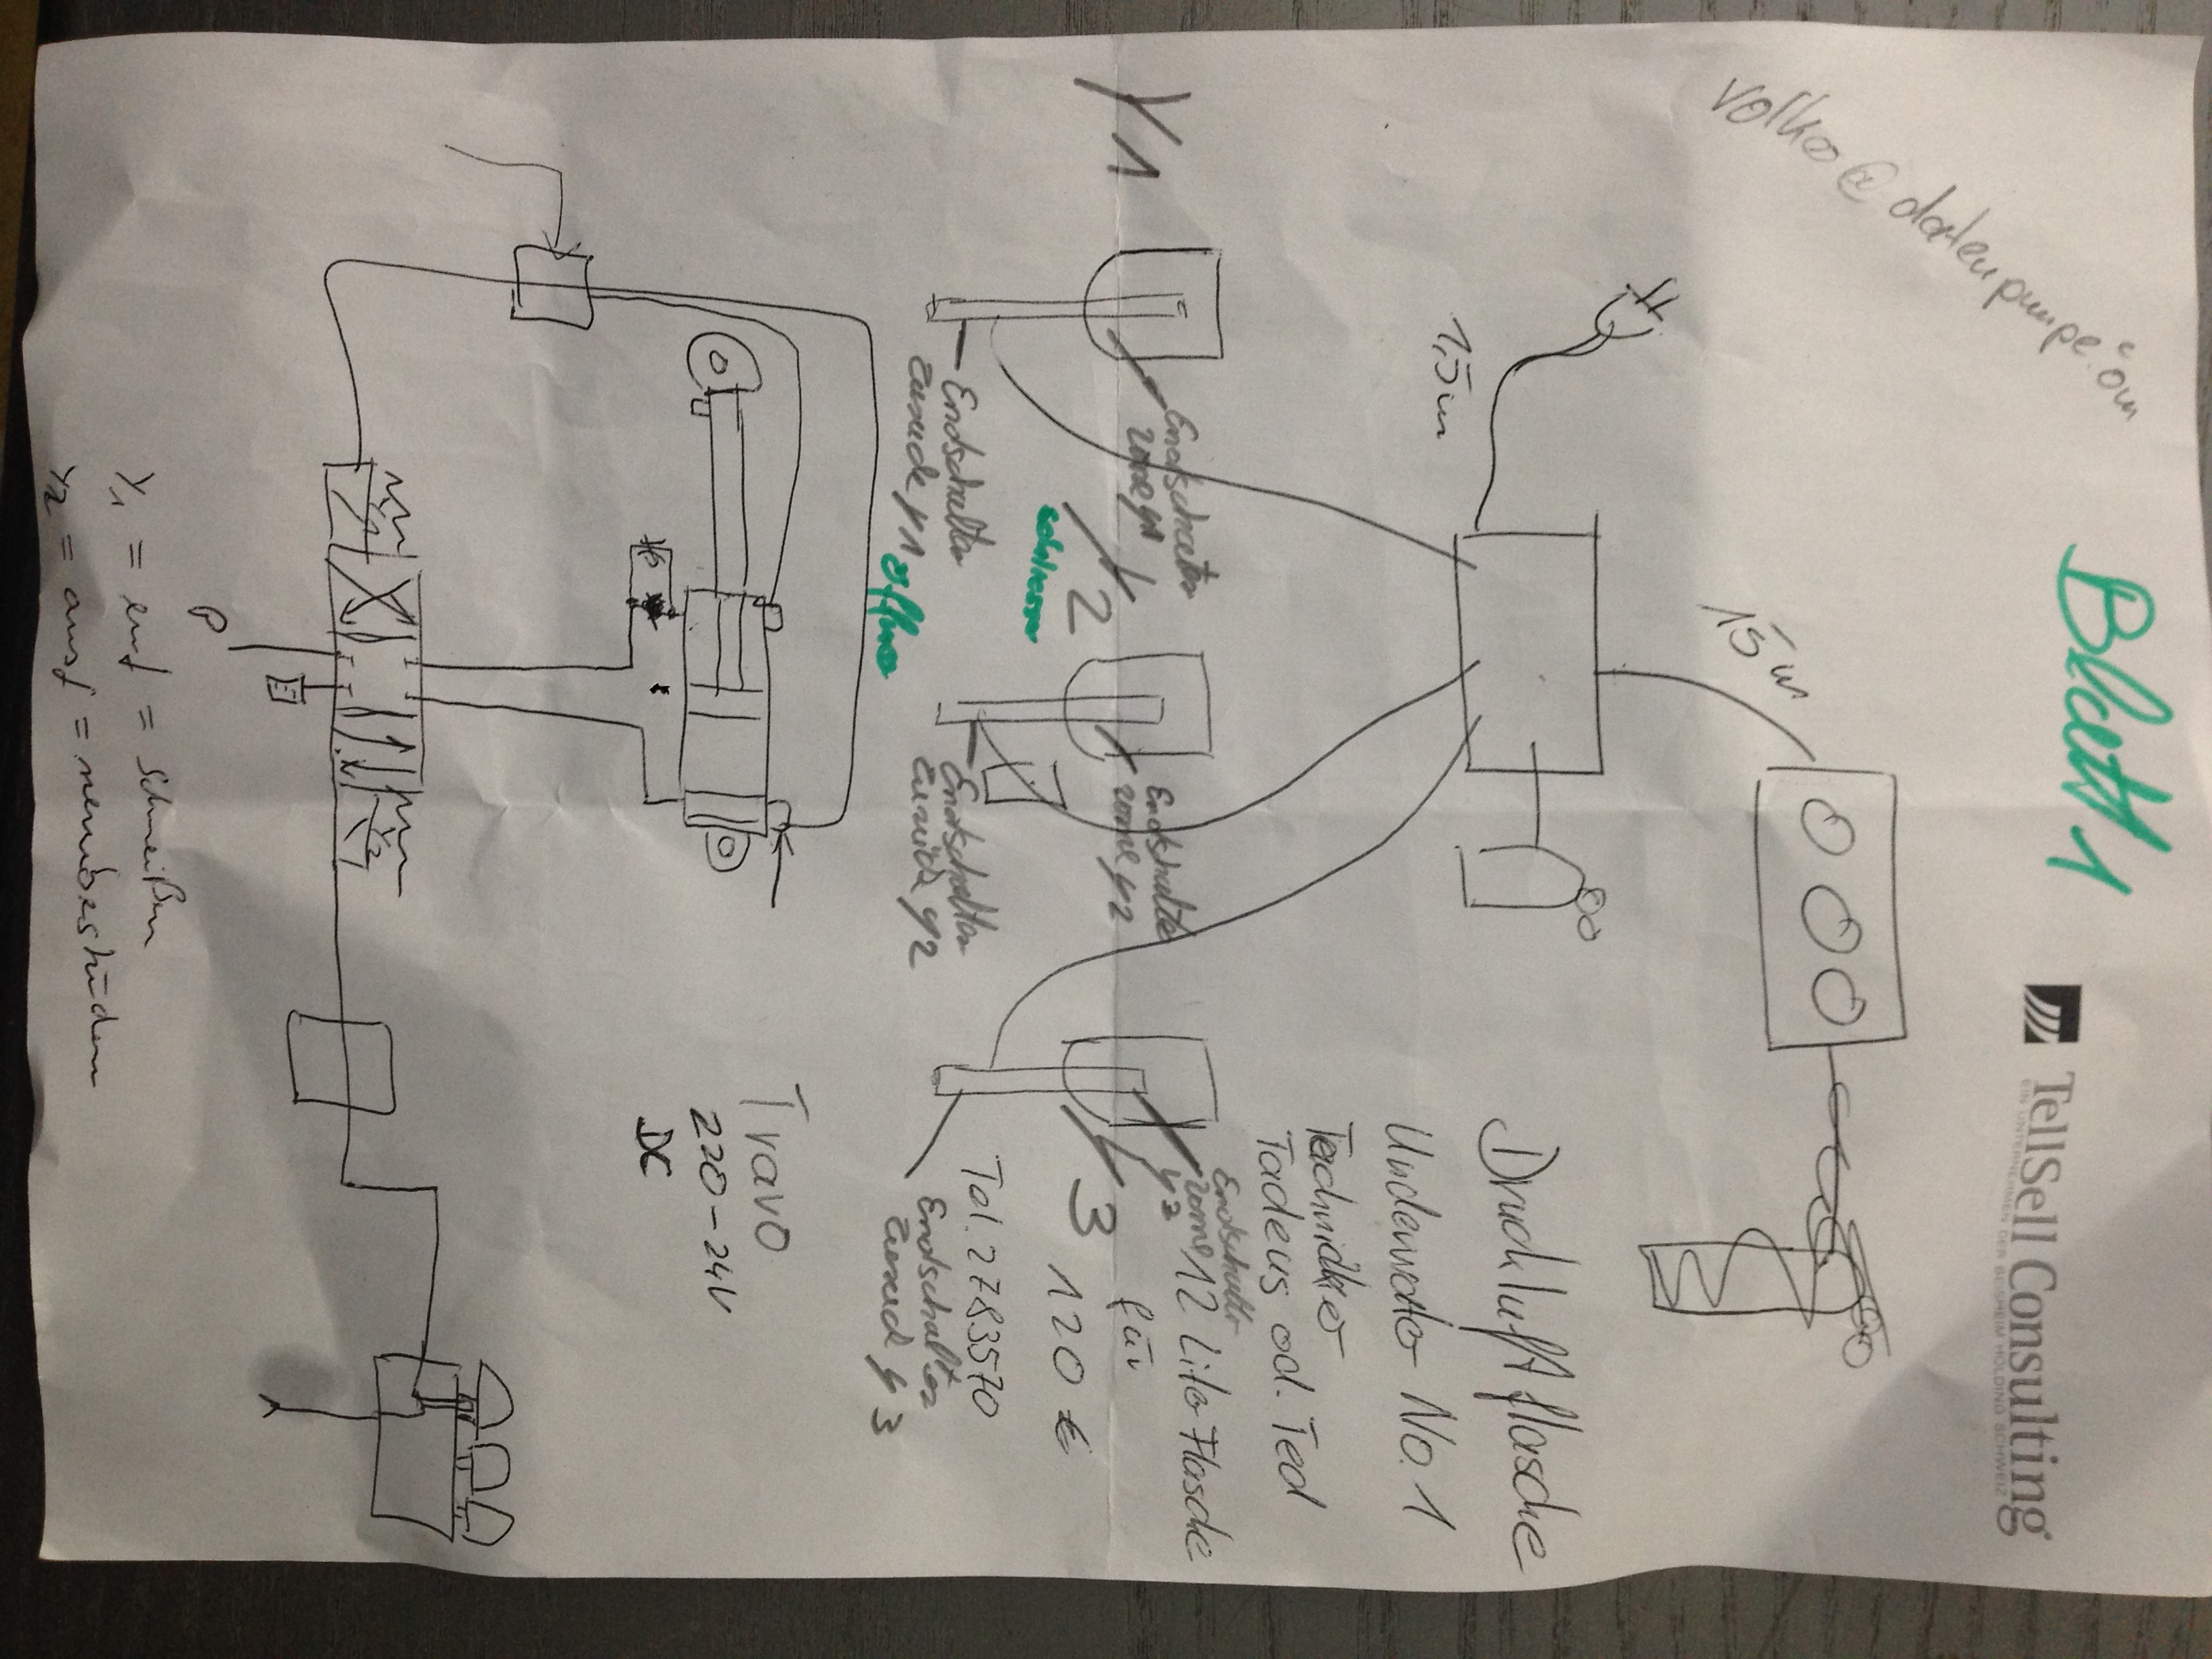 Blatt 1
TellSell Consulting
EIN UNTERNEHMEN DER BEISHEIM HOLDING SCHWEIZ
15 m
1,5 m
Druckluftflasche
Underwater No. 1
Techniker
Tadeus od. Ted
12 Liter Flasche
für
120 €
Tel. 2783570
Y1
Endschalter
vorne y1
Endschalter
zurück Y1
öffnen
Y2
schliessen
Endschalter
vorne y2
Endschalter
zurück y2
Y3
Endschalter
vorne
y3
Endschalter
zurück y3
Travo
220-24V
DC
P
Y1
Y2
Y1 = auf =
Y2 = =